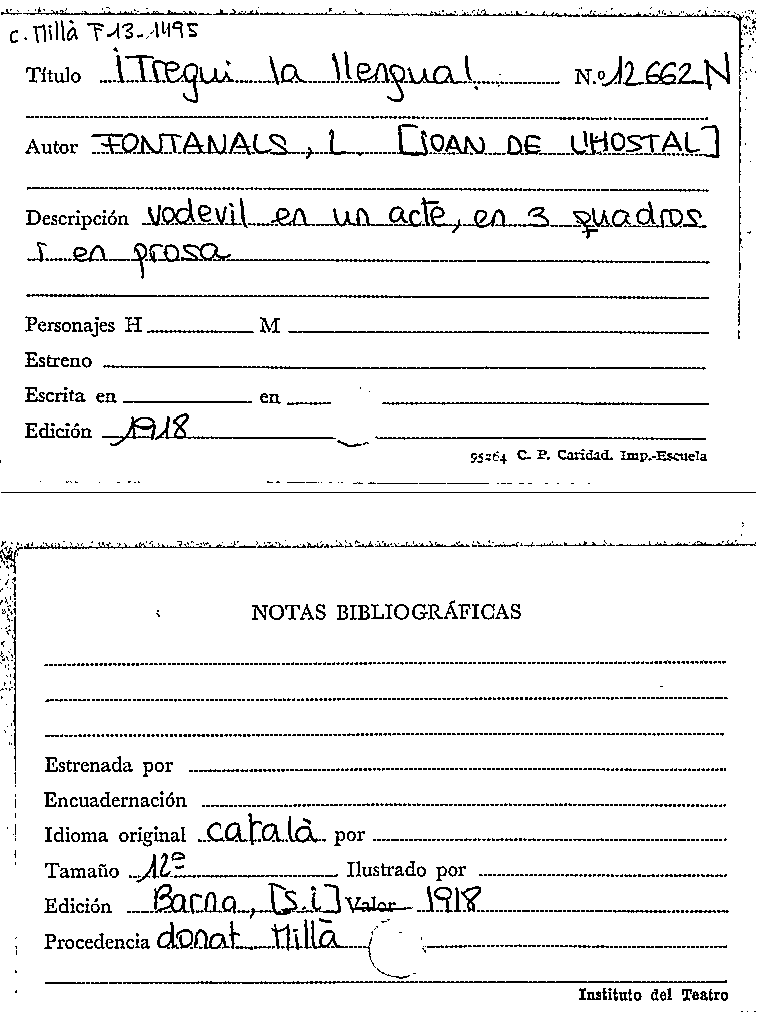 c. Millà F-13-1495
Título ¡Tregui la llengua! N.º 12662 N
Autor FONTANALS, L. [JOAN DE L'HOSTAL]
Descripción vodevil en un acte, en 3 quadros
i en prosa
Personajes H M
Estreno
Escrita en en
Edición 1918
95264 C. P. Caridad. Imp.-Escuela
NOTAS BIBLIOGRÁFICAS
Estrenada por
Encuadernación
Idioma original català por
Tamaño 12º Ilustrado por
Edición Barna, [s.i] Valor 1918
Procedencia donat Millà
Instituto del Teatro